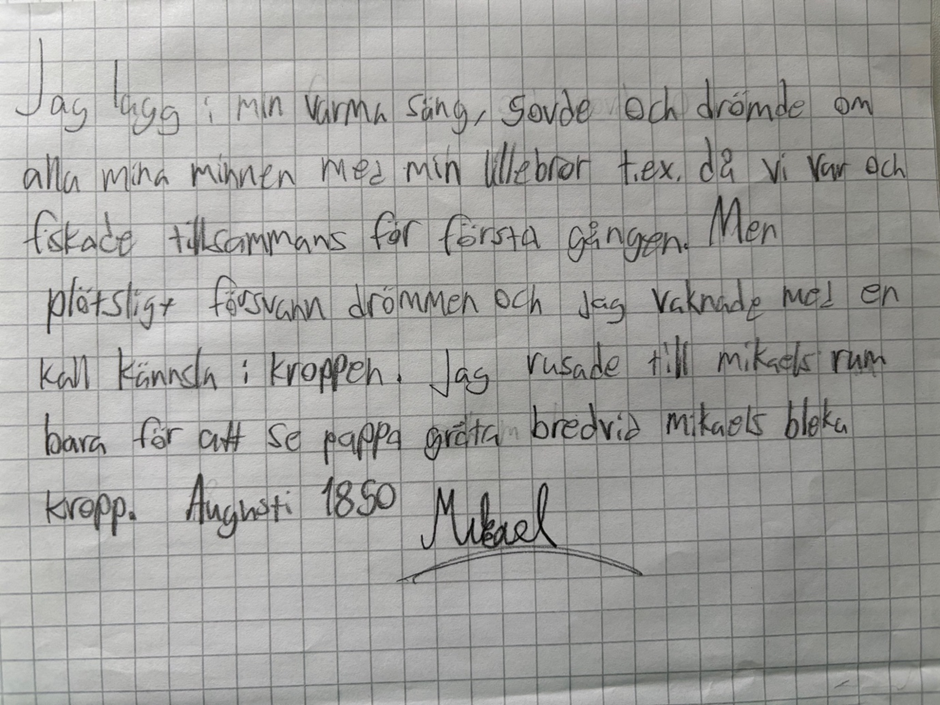 Jag lagg i min varma säng, sovde och drömde om
alla mina minnen med min lillebror t.ex. då vi var och
fiskade tillsammans för första gången. Men
plötsligt försvann drömmen och jag vaknade med en
kall kännsla i kroppen. Jag rusade till mikaels rum
bara för att se pappa gråta bredvid mikaels bleka
kropp. Augusti 1850 Mikael